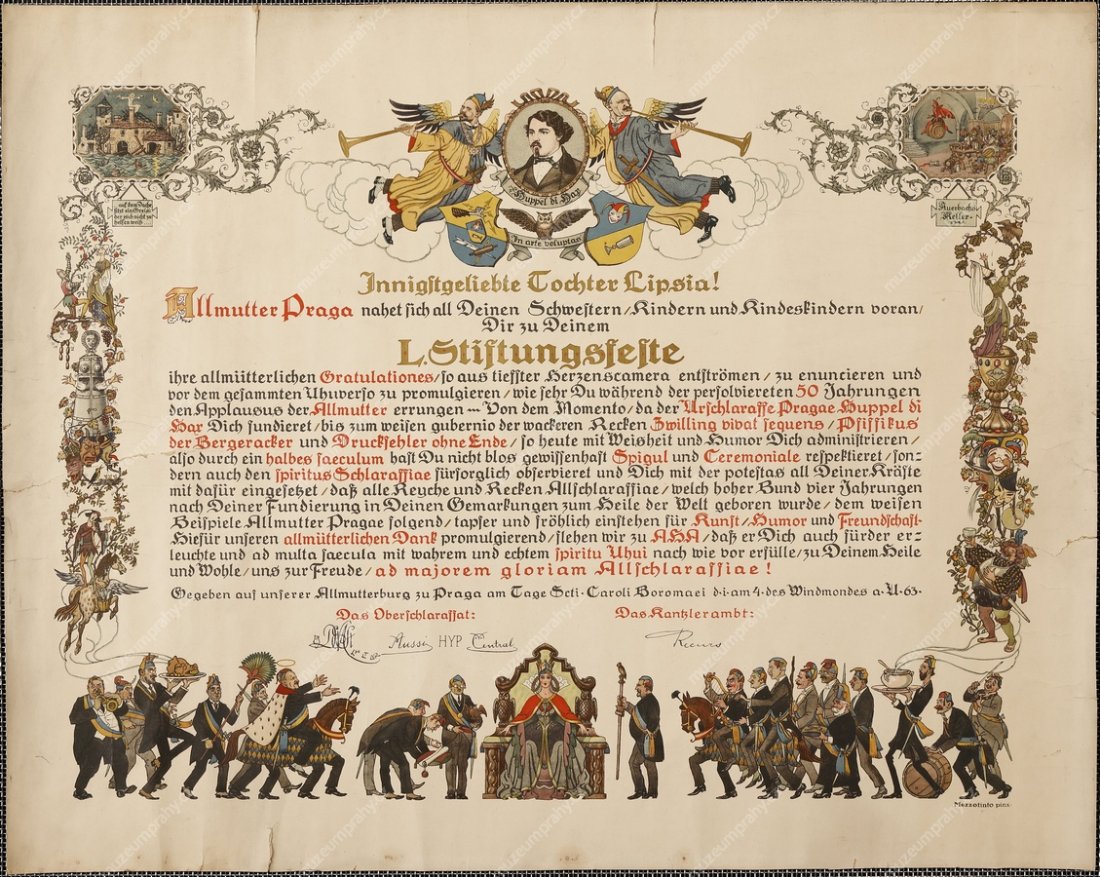 auf dem Dache
sitzt ein Greis
der sich nicht zu
helfen weiß...
Auerbachs
Keller
Huppel di Hax
In arte voluptas
Innigstgeliebte Tochter Lipsia!
Allmutter Praga nahet sich all Deinen Schwestern/Kindern und Kindeskindern voran/
Dir zu Deinem
L. Stiftungsfeste
ihre allmütterlichen Gratulationes/so aus tiefster Herzenscamera entströmen/zu enuncieren und
vor dem gesammten Uhuverso zu promulgieren/wie sehr Du während der persolviereten 50 Jahrungen
den Applausus der Allmutter errungen--- Von dem Momento/da der Urschlaraffe Pragae Huppel di
Hax Dich fundieret/bis zum weisen gubernio der wackeren Recken Zwilling vivat sequens/Pfiffikus
der Bergeracker und Druckfehler ohne Ende/so heute mit Weisheit und Humor Dich administrieren/
also durch ein halbes saeculum hast Du nicht blos gewissenhaft Spigul und Ceremoniale respektieret/son-
dern auch den spiritus Schlaraffiae fürsorglich observieret und Dich mit der potestas all Deiner Kräfte
mit dafür eingesetzet/daß alle Reyche und Recken Allschlaraffiae/welch hoher Bund vier Jahrungen
nach Deiner Fundierung in Deinen Gemarkungen zum Heile der Welt geboren wurde/dem weisen
Beispiele Allmutter Pragae folgend/tapfer und fröhlich einstehen für Kunst/Humor und Freundschaft-
Hiefür unseren allmütterlichen Dank promulgierend/flehen wir zu AHA/daß er Dich auch fürder er-
leuchte und ad multa saecula mit wahrem und echtem spiritu Uhui nach wie vor erfülle/zu Deinem Heile
und Wohle/uns zur Freude/ad majorem gloriam Allschlaraffiae!
Gegeben auf unserer Allmutterburg zu Praga am Tage Scti · Caroli Boromaei d·i·am 4·des Windmondes a·U·63·
Das Oberschlaraffat:
Das Kantzlerambt:
HYP Central
Mezzotinto pinx·